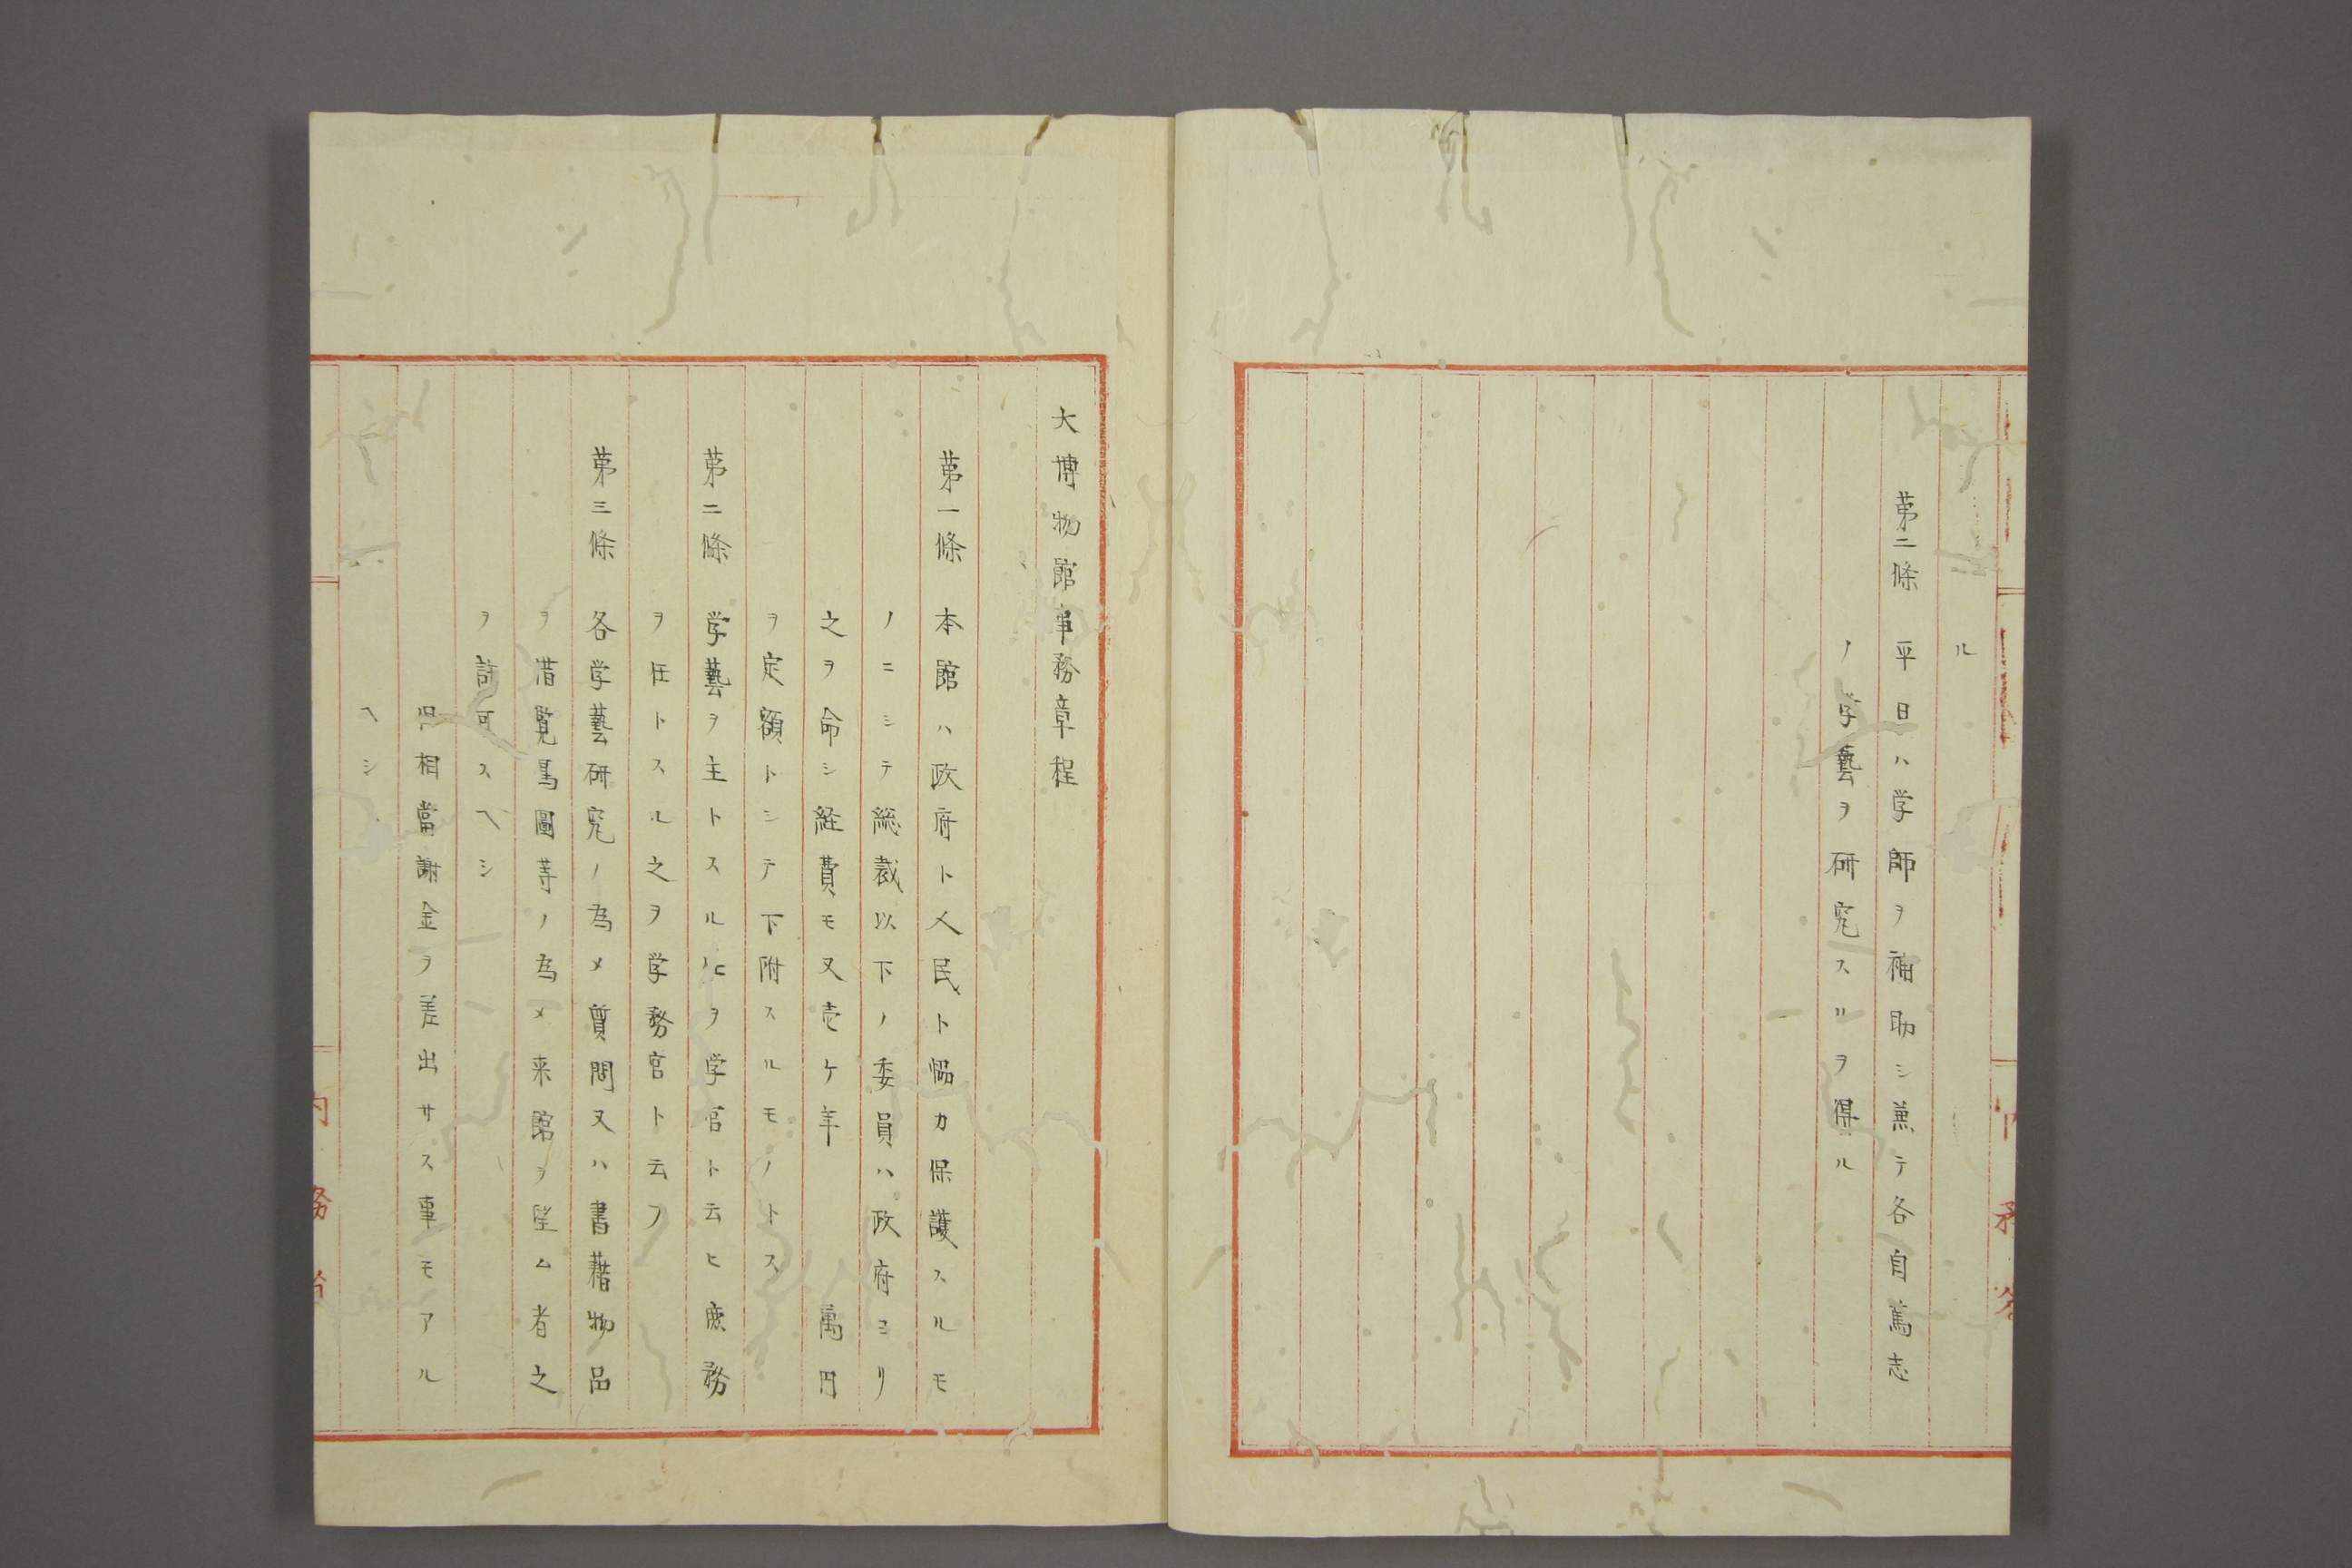 ル
第二條 平日ハ学師ヲ補助シ兼テ各自篤志
ノ学藝ヲ研究スルヲ得ル
大博物館事務章程
第一條 本館ハ政府ト人民ト協力保護スルモ
ノニシテ総裁以下ノ委員ハ政府ヨリ
之ヲ命シ経費モ又壱ケ年 萬円
ヲ定額トシテ下附スルモノトス
第二條 学藝ヲ主トスルヒヲ学官ト云ヒ庶務
ヲ任トスル之ヲ学務官ト云フ
第三條 各学藝研究ノ為メ質問又ハ書藉物品
ヲ借覧写圖等ノ為メ来館ヲ望ム者之
ヲ許可スヘシ
但相當謝金ヲ差出サス事モアル
ヘシ
内務